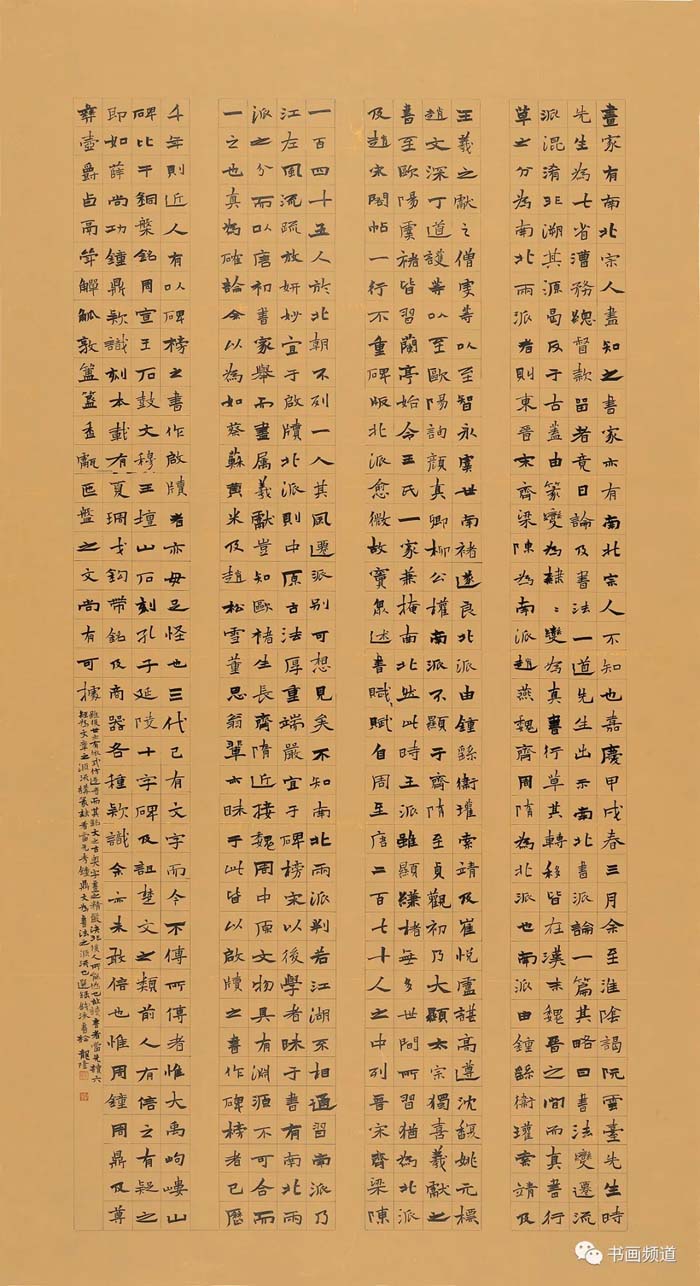 畫家有南北宗人盡知之書家亦有南北宗人不知也嘉慶甲戌春三月余至淮陰謁阮雲臺先生時
先生為七省漕務總督款留者竟日論及書法一道先生出示南北書派論一篇其略曰書法變遷流
派混淆非溯其源曷反于古蓋由篆變為隸隸變為真書行草其轉移皆在漢末魏晉之間而真書行
草之分為南北兩派者則東晉宋齊梁陳為南派趙燕魏齊周隋為北派也南派由鍾繇衛瓘索靖及
王羲之獻之僧虔等以至智永虞世南褚遂良北派由鍾繇衛瓘索靖及崔悅盧諶高遵沈馥姚元標
趙文深丁道護等以至歐陽詢顏真卿柳公權南派不顯于齊隋至貞觀初乃大顯太宗獨喜羲獻之
書至歐陽虞褚皆習蘭亭始令王氏一家兼掩南北然此時王派雖顯縑楮無多世間所習猶為北派
及趙宋閣帖一行不重碑版北派愈微故竇臮述書賦賦自周至唐二百七十人之中列晉宋齊梁陳
一百四十五人於北朝不列一人其風遷派別可想見矣不知南北兩派判若江湖不相通習南派乃
江左風流疏放妍妙宜于啟牘北派則中原古法厚重端嚴宜于碑榜宋以後學者昧于書有南北兩
派之分而以唐初書家舉而盡屬羲獻豈知歐褚生長齊隋近接魏周中原文物具有淵源不可合而
一之也真為確論余以為如蔡蘇黃米及趙松雪董思翁輩亦昧于此皆以啟牘之書作碑榜者已歷
千年則近人有以碑榜之書作啟牘者亦毋足怪也三代已有文字而今不傳所傳者惟大禹岣嶁山
碑比干銅槃銘周宣王石鼓文穆王壇山石刻孔子延陵十字碑及詛楚文之類前人有信之有疑之
即如薛尚功鐘鼎款識刻本載有夏琱戈鉤帶銘及商器各種款識余亦未敢信也惟周鐘周鼎及尊
彝壺爵卣鬲斝觶觚敦簠簋盉甗匜盤之文尚有可據